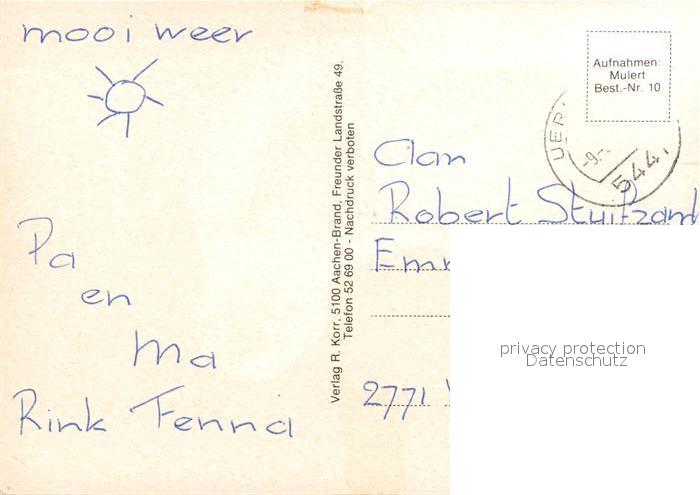 mooi weer
Pa
en
Ma
Rink Fenna
Verlag R. Korr, 5100 Aachen-Brand, Freunder Landstraße 49,
Telefon 52 69 00 - Nachdruck verboten
Aufnahmen:
Mulert
Best.-Nr. 10
UER
-9.-
544
Aan
Robert Stuifzand
2771
privacy protection
Datenschutz